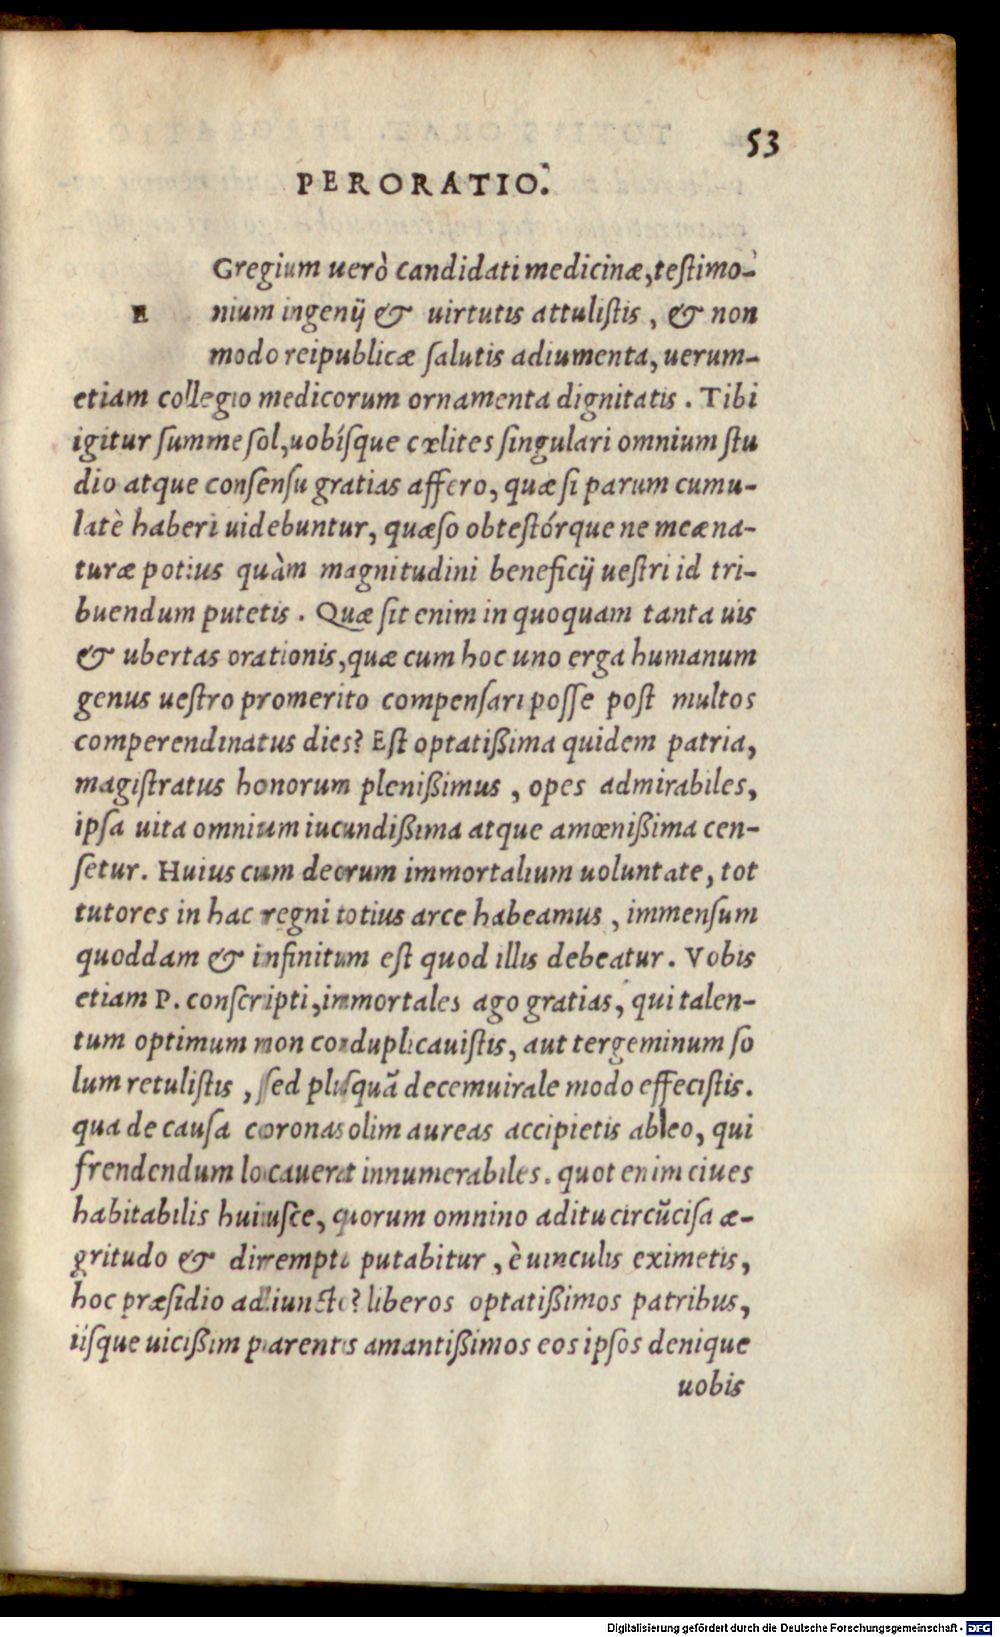 53
PERORATIO.
Gregium uerò candidati medicinæ, testimo-
E nium ingenij & uirtutis attulistis, & non
modo reipublicæ salutis adiumenta, uerum-
etiam collegio medicorum ornamenta dignitatis. Tibi
igitur summe sol, uobísque cælites singulari omnium stu
dio atque consensu gratias affero, quæ si parum cumu-
latè haberi uidebuntur, quæso obtestórque ne meæ na-
turæ potius quàm magnitudini beneficij uestri id tri-
buendum putetis. Quæ sit enim in quoquam tanta uis
& ubertas orationis, quæ cum hoc uno erga humanum
genus uestro promerito compensari posse post multos
comperendinatus dies? Est optatißima quidem patria,
magistratus honorum plenißimus, opes admirabiles,
ipsa uita omnium iucundißima atque amœnißima cen-
setur. Huius cum deorum immortalium uoluntate, tot
tutores in hac regni totius arce habeamus, immensum
quoddam & infinitum est quod illis debeatur. Vobis
etiam P. conscripti, immortales ago gratias, qui talen-
tum optimum non conduplicauistis, aut tergeminum so
lum retulistis, sed plusquã decemuirale modo effecistis.
qua de causa coronas olim aureas accipietis ab leo, qui
frendendum locauerat innumerabiles. quot enim ciues
habitabilis huiusce, quorum omnino aditu circũcisa æ-
gritudo & dirrempta putabitur, è uinculis eximetis,
hoc præsidio adiuncto? liberos optatißimos patribus,
iísque uicißim parentes amantißimos eos ipsos denique
uobis
Digitalisierung gefördert durch die Deutsche Forschungsgemeinschaft - DFG